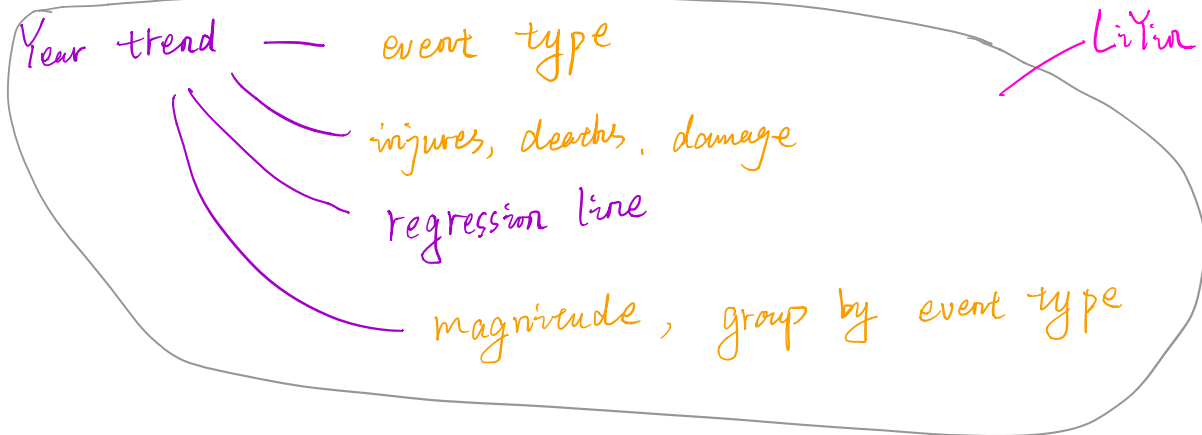 Year trend — event type
LiYin
injures, deaths, damage
regression line
magnitude, group by event type